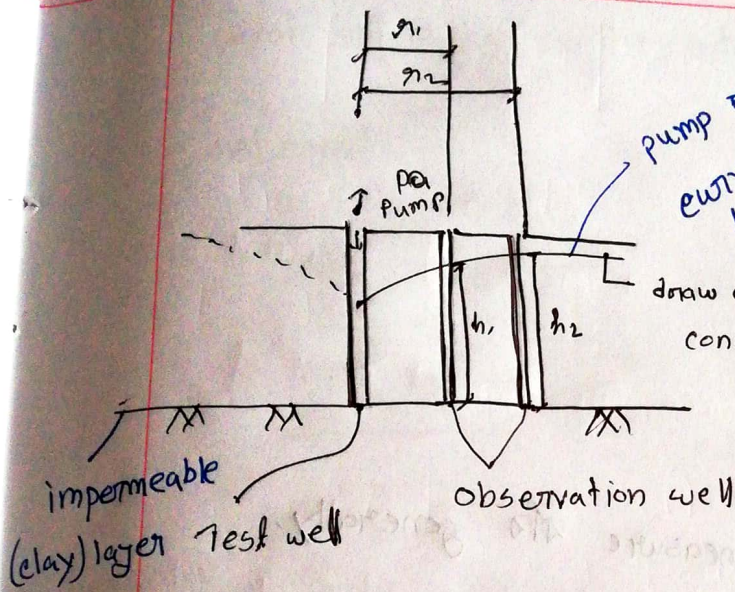 r1
r2
pump
Pa
pump
h1
h2
draw
con
impermeable
(clay) layer
Test well
Observation well